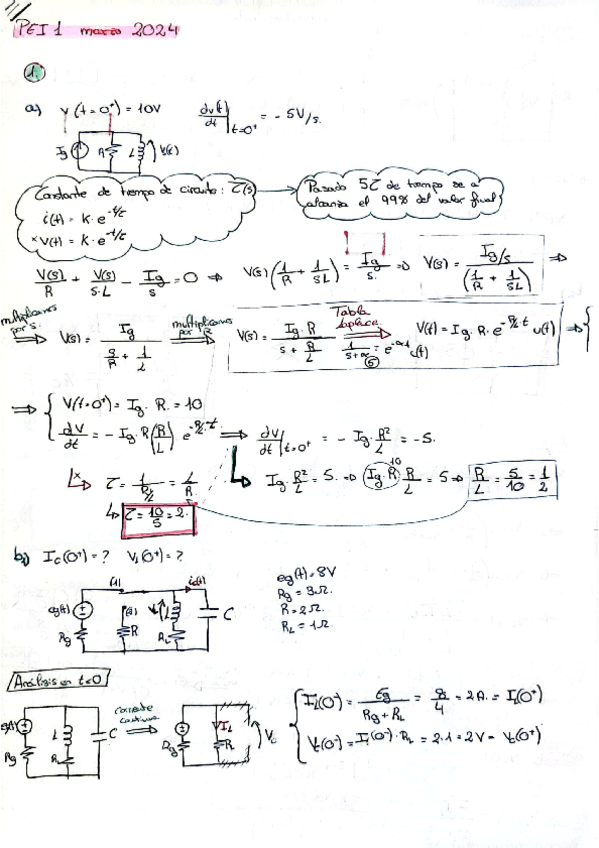 PEI 1 marzo 2024
1.
a) v(t=0⁺) = 10V   dv(t)/dt |t=0⁺ = -5V/s.
Ig R L v(t)
Constante de tiempo de circuito: τ(s)
i(t) = K·e^-t/τ
* v(t) = K·e^-t/τ
Pasado 5τ de tiempo se a
alcanza el 99% del valor final
V(s)/R + V(s)/s·L - Ig/s = 0 ⇒ V(s)(1/R + 1/sL) = Ig/s ⇒ V(s) = Ig/s / (1/R + 1/sL) ⇒
multiplicamos por s. ⇒ V(s) = Ig / (s/R + 1/L) multiplicamos por R ⇒ V(s) = Ig·R / (s + R/L) Tabla Laplace ⇒ 1/(s+α) = e^-αt u(t) V(t) = Ig·R·e^-R/L·t u(t) ⇒ {
⇒ { V(t=0⁺) = Ig·R = 10
dv/dt = -Ig·R(R/L)·e^-R/L·t ⇒ dv/dt |t=0⁺ = -Ig·R²/L = -5.
τ = 1/(R/L) = L/R
Ig·R²/L = 5 ⇒ Ig·R·R/L = 5 ⇒ R/L = 5/10 = 1/2
10
↳ τ = 10/5 = 2.
b) Ic(0⁺) = ? VL(0⁺) = ?
(1) ic(t)
eg(t) (2) VL L C
Rg R RL
eg(t) = 8V
Rg = 3Ω.
R = 2Ω.
RL = 1Ω.
Análisis en t<0
eg(t) L C
Rg RL
corriente
continua
IL
Rg RL Vc
IL(0⁻) = Eg/(Rg+RL) = 8/4 = 2A. = IL(0⁺)
Vc(0⁻) = IL(0⁻)·RL = 2·1 = 2V = Vc(0⁺)